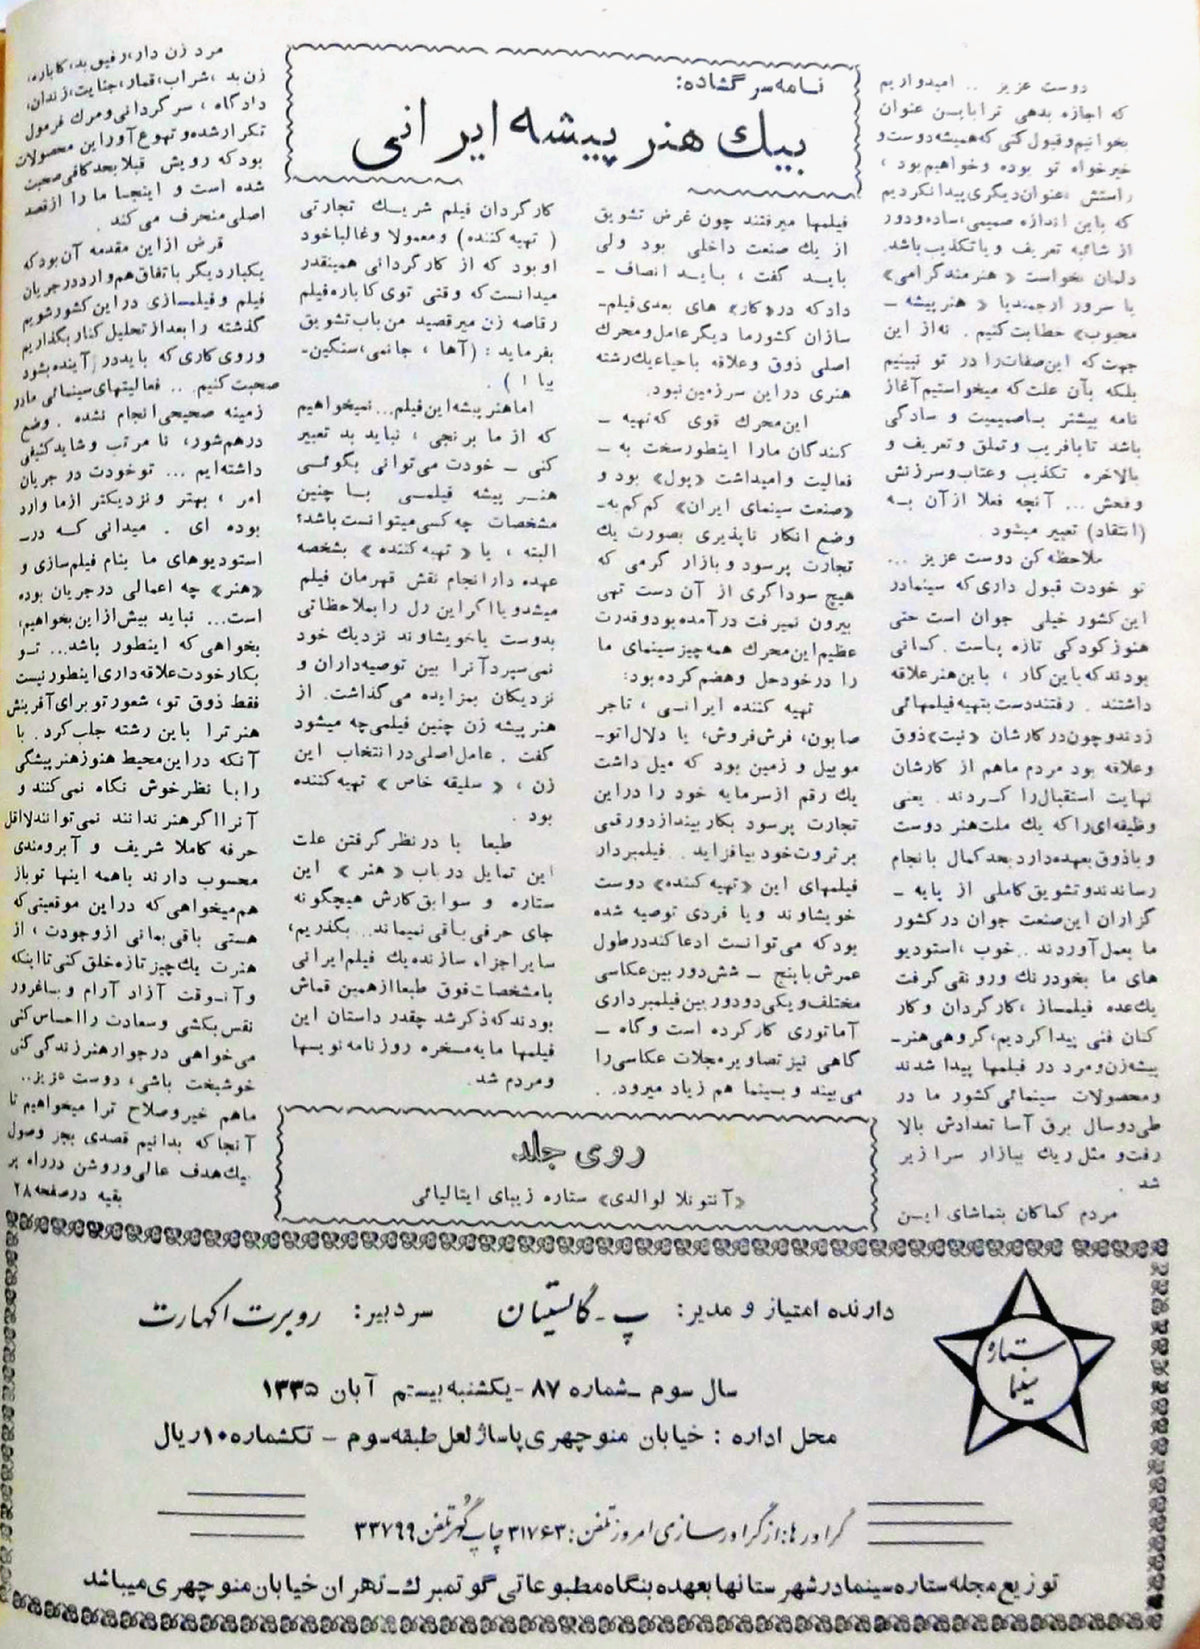 نامه سرگشاده:
بیك هنرپیشه ایرانی
دوست عزیز .. امیدواریم
که اجازه بدهی ترا باین عنوان
بخوانیم و قبول کنی که همیشه دوست و
خیرخواه تو بوده و خواهیم بود،
راستش عنوان دیگری پیدا نکردیم
که باین اندازه صمیمی، ساده و دور
از شائبه تعریف و یا تکذیب باشد.
دلمان نخواست «هنرمند گرامی»
یا سرور ارجمند یا «هنرپیشه ـ
محبوب» خطابت کنیم . نه از این
جهت که این صفات را در تو نبینیم
بلکه بآن علت که میخواستیم آغاز
نامه بیشتر باصمیمیت و سادگی
باشد تا بافریب و تملق و تعریف و
بالاخره تکذیب و عتاب و سرزنش
و فحش ... آنچه فعلا از آن به
(انتقاد) تعبیر میشود .
ملاحظه کن دوست عزیز ...
تو خودت قبول داری که سینما در
این کشور خیلی جوان است حتی
هنوز کودکی تازه پاست . کسانی
بودند که باین کار ، باین هنر علاقه
داشتند . رفتند دست بتهیه فیلمهائی
زدند و چون در کارشان «نیت» ذوق
و علاقه بود مردم ماهم از کارشان
نهایت استقبال را کردند . یعنی
وظیفه‌ای را که یك ملت هنر دوست
و باذوق بعهده دارد بحد کمال بانجام
رساندند و تشویق کاملی از پایه ـ
گزاران این صنعت جوان در کشور
ما بعمل آوردند .. خوب ، استودیو
های ما بخود رنك و رونقی گرفت
یك عده فیلمساز ، کارگردان و کار
کنان فنی پیدا کردیم، گروهی هنر ـ
پیشه زن و مرد در فیلمها پیدا شدند
و محصولات سینمائی کشور ما در
طی دو سال برق آسا تعدادش بالا
رفت و مثل ریك ببازار سرازیر
شد .
مردم کماکان بتماشای این
فیلمها میرفتند چون غرض تشویق
از یك صنعت داخلی بود ولی
باید گفت ، باید انصاف ـ
داد که در «کار» های بعدی فیلم ـ
سازان کشور ما دیگر عامل و محرك
اصلی ذوق و علاقه باحیاء یك رشته
هنری در این سرزمین نبود.
این محرك قوی که تهیه ـ
کنندگان مارا اینطور سخت به ـ
فعالیت وامیداشت «پول» بود و
«صنعت سینمای ایران» کم کم به ـ
وضع انکار ناپذیری بصورت یك
تجارت پرسود و بازار گرمی که
هیچ سوداگری از آن دست تهی
بیرون نمیرفت در آمده بود و قدرت
عظیم این محرك همه چیز سینمای ما
را در خود حل و هضم کرده بود:
تهیه کننده ایرانی ، تاجر
صابون، فرش فروش، یا دلال اتو ـ
موبیل و زمین بود که میل داشت
یك رقم از سرمایه خود را در این
تجارت پرسود بکار بیندازد و رقمی
بر ثروت خود بیافزاید .. فیلمبردار
فیلمهای این «تهیه کننده» دوست
خویشاوند و یا فردی توصیه شده
بود که می توانست ادعا کند در طول
عمرش با پنج ـ شش دوربین عکاسی
مختلف و یکی دو دوربین فیلمبرداری
آماتوری کار کرده است و گاه ـ
گاهی نیز تصاویر مجلات عکاسی را
می بیند و بسینما هم زیاد میرود. .
کارگردان فیلم شریك تجارتی
(تهیه کننده) و معمولا و غالبا خود
او بود که از کارگردانی همینقدر
میدانست که وقتی توی کاباره فیلم
رقاصه زن میرقصید من باب تشویق
بفرماید : (آها ، جانمی، سنگین ـ
بیا ! ) .
اما هنرپیشه این فیلم... نمیخواهیم
که از ما برنجی ، نباید بد تعبیر
کنی ـ خودت می توانی بگوئی
هنرپیشه فیلمی با چنین
مشخصات چه کسی میتوانست باشد؟
البته ، یا «تهیه کننده» بشخصه
عهده دار انجام نقش قهرمان فیلم
میشد و یا اگر این رل را بملاحظاتی
بدوست یا خویشاوند نزدیك خود
نمی سپرد آنرا بین توصیه داران و
نزدیکان بمزایده می گذاشت. از
هنرپیشه زن چنین فیلمی چه میشود
گفت . عامل اصلی در انتخاب این
زن ، «سلیقه خاص» تهیه کننده
بود .
طبعا با در نظر گرفتن علت
این تمایل در باب «هنر» این
ستاره و سوابق کارش هیچگونه
جای حرفی باقی نمیماند.. بگذریم،
سایر اجزاء سازنده یك فیلم ایرانی
با مشخصات فوق طبعا از همین قماش
بودند که ذکر شد چقدر داستان این
فیلمها مایه مسخره روزنامه نویسها
و مردم شد.
مرد زن دار، رفیق بد، کاباره،
زن بد ، شراب، قمار، جنایت، زندان،
دادگاه ، سرگردانی و مرك فرمول
تکرار شده و تهوع آور این محصولات
بود که رویش قبلا بحد کافی صحبت
شده است و اینجا ما را از قصد
اصلی منحرف می کند .
غرض از این مقدمه آن بود که
یکبار دیگر با تفاق هم وارد در جریان
فیلم و فیلمسازی در این کشور شویم
گذشته را بعد از تحلیل کنار بگذاریم
و روی کاری که باید در آینده بشود
صحبت کنیم . . فعالیتهای سینمائی ما در
زمینه صحیحی انجام نشده . وضع
در هم شور، نا مرتب و شاید کثیفی
داشته‌ایم ... تو خودت در جریان
امر ، بهتر و نزدیکتر از ما وارد
بوده ای . میدانی که در ـ
استودیوهای ما بنام فیلم سازی و
«هنر» چه اعمالی در جریان بوده
است... نباید بیش از این بخواهیم،
بخواهی که اینطور باشد... تو
بکار خودت علاقه داری اینطور نیست
فقط ذوق تو، شعور تو برای آفرینش
هنر ترا باین رشته جلب کرد . با
آنکه در این محیط هنوز هنرپیشگی
را با نظر خوش نگاه نمی کنند و
آنرا اگر هنر ندانند نمی توانند لااقل
حرفه کاملا شریف و آبرومندی
محسوب دارند باهمه اینها تو باز
هم میخواهی که در این موقعیتی که
هستی باقی بمانی از وجودت ، از
هنرت یك چیز تازه خلق کنی تا اینکه
و آنوقت آزاد آرام و باغرور
نفس بکشی و سعادت را احساس کنی
می خواهی در جوار هنر زندگی کنی
خوشبخت باشی، دوست عزیز..
ماهم خیر و صلاح ترا میخواهیم تا
آنجا که بدانیم قصدی بجز وصول
بیك هدف عالی و روشن در راه پر
بقیه در صفحه ۲۸
روی جلد
«آنتونلا لوالدی» ستاره زیبای ایتالیائی
ستاره
سینما
دارنده امتیاز و مدیر: پ ـ گالستیان سردبیر: روبرت اکهارت
سال سوم ـ شماره ۸۷ - یکشنبه بیستم آبان ۱۳۳۵
محل اداره : خیابان منوچهری پاساژ لعل طبقه سوم - تکشماره ۱۰ ریال
گراورها: از گراورسازی امروز تلفن: ۳۱۷۶۳ چاپ گهر تلفن ۳۳۷۹۹
توزیع مجله ستاره سینما در شهرستانها بعهده بنگاه مطبوعاتی گوتمبرك ـ تهران خیابان منوچهری میباشد